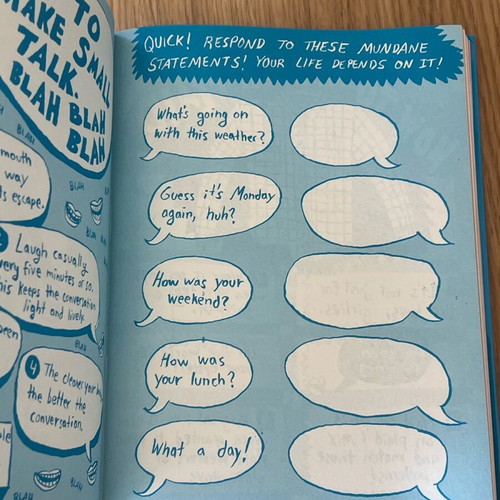 TO
MAKE SMALL
TALK.
BLAH BLAH
BLAH
BLAH
mouth
way
escape.
BLAH
BLAH
BLAH
Laugh casually
five minutes or so.
keeps the conversation
light and lively.
BLAH
4 The cleaner your
the better the
conversation
BLAH
QUICK! RESPOND TO THESE MUNDANE
STATEMENTS! YOUR LIFE DEPENDS ON IT!
What's going on
with this weather?
Guess it's Monday
again, huh?
How was your
weekend?
How was
your lunch?
What a day!